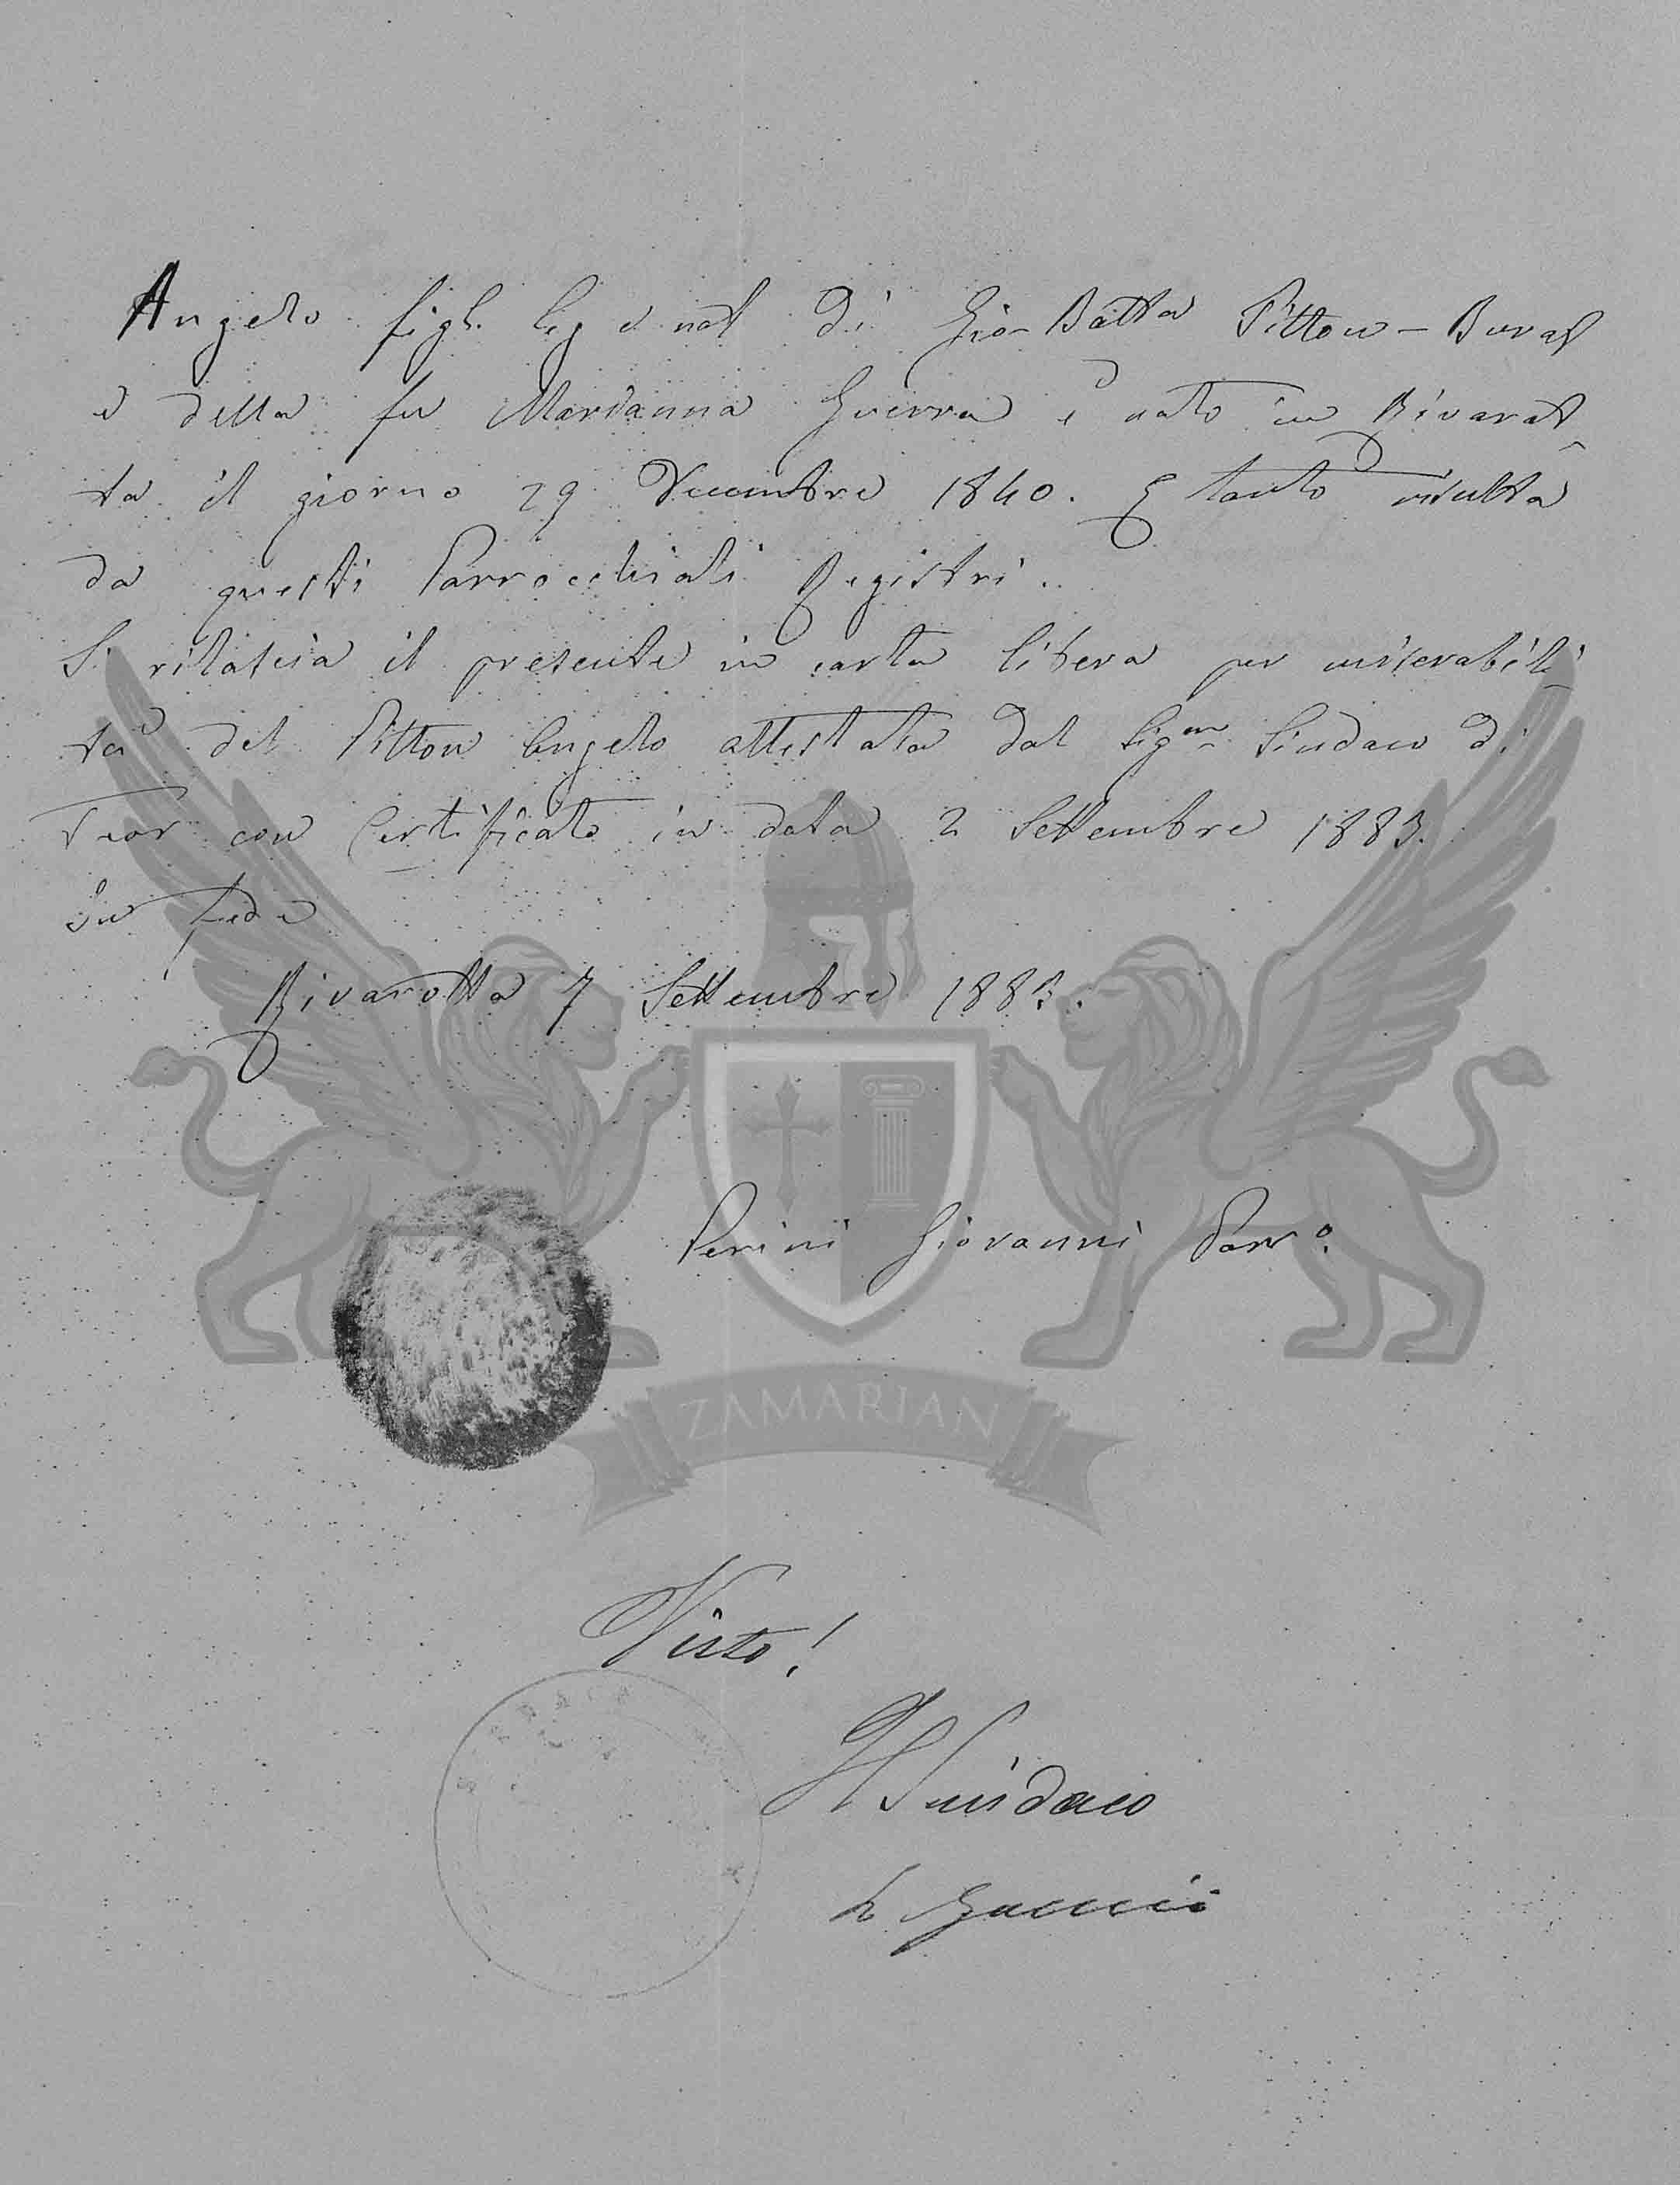 Angelo figl. leg e nat di Gio Batta Pitton - Burat
e della fu Marianna Guerra è nato in Rivarot
ta il giorno 29 Decembre 1840. E tanto risulta
da questi Parrocchiali Registri.
Si rilascia il presente in carta libera per miserabili
tà del Pitton Angelo attestata dal Sig.or Sindaco di
Teor con Certificato in data 2 Settembre 1883.
In fede
Rivarotta 7 Settembre 1883.
Perini Giovanni Parr.o
ZAMARIAN
Visto!
Il Sindaco